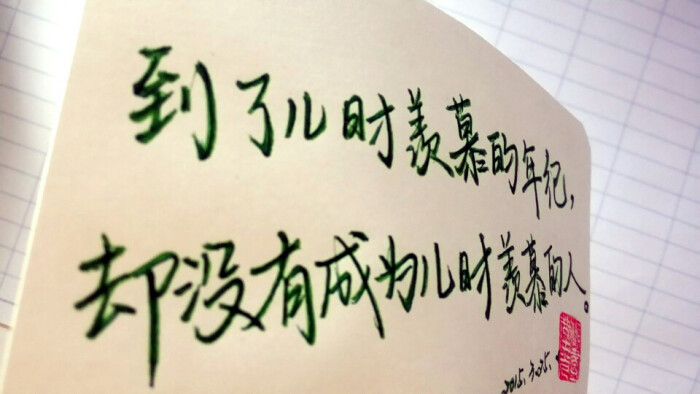 到了儿时羡慕的年纪,
却没有成为儿时羡慕的人。
2015.3.25.